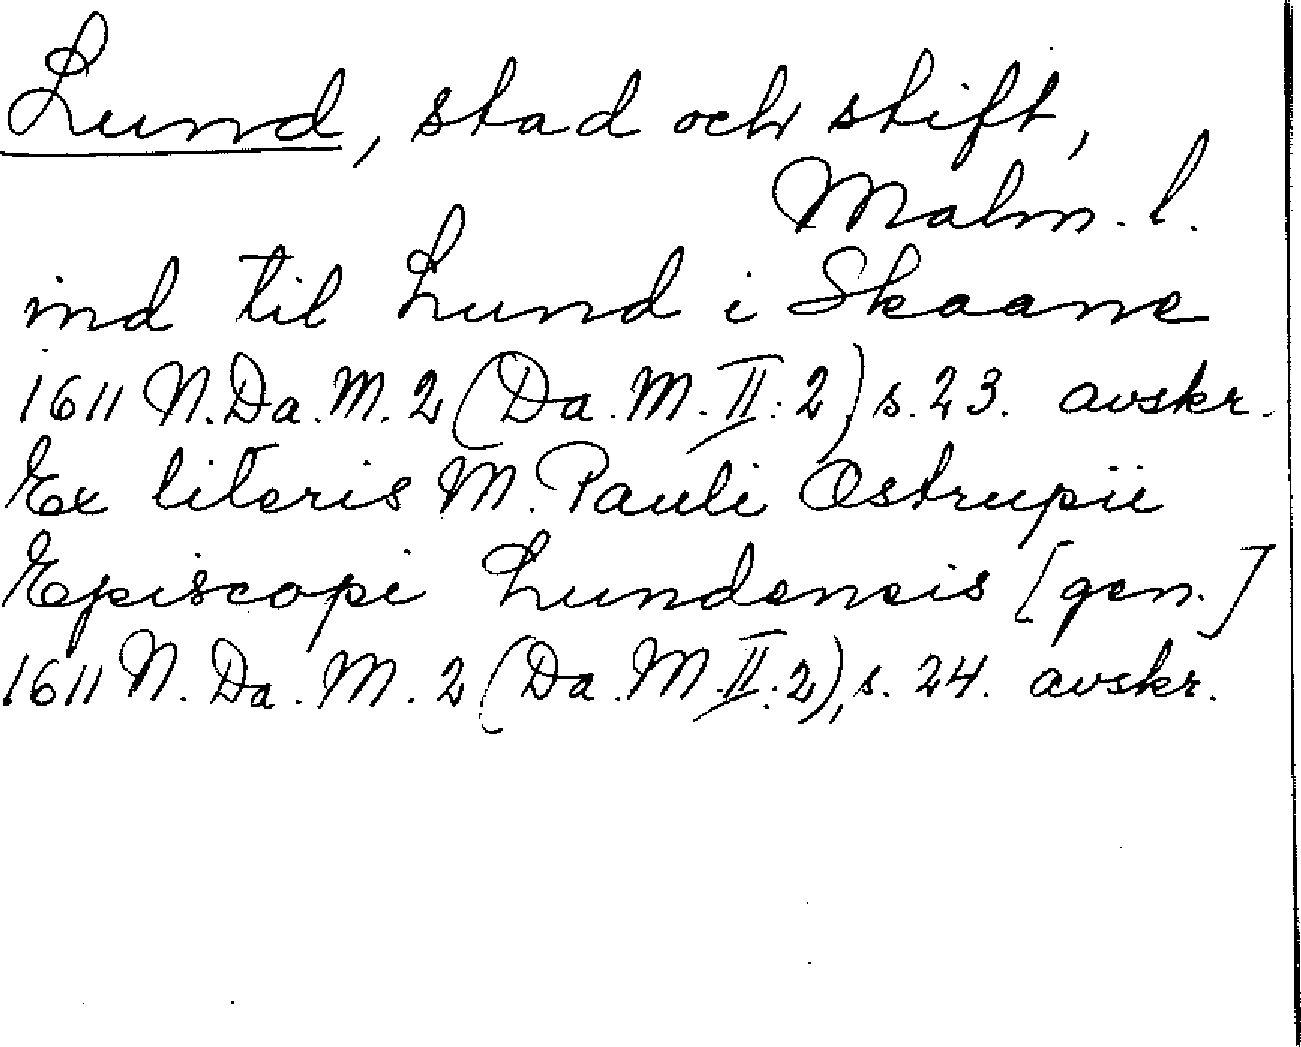 Lund, stad och stift,
Malm. l.
ind til Lund i Skaane
1611 N. Da. M. 2 (Da. M. II: 2) s. 23. avskr.
Ex literis M. Pauli Ostrupii
Episcopi Lundensis [gen.]
1611 N. Da. M. 2 (Da. M. II: 2), s. 24. avskr.